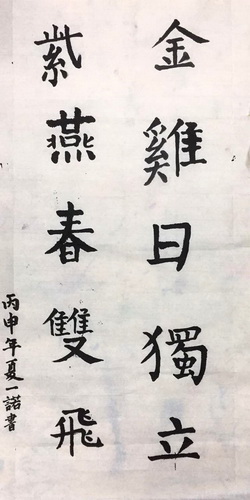 金雞曰獨立
紫燕春雙飛
丙申年夏一諾書